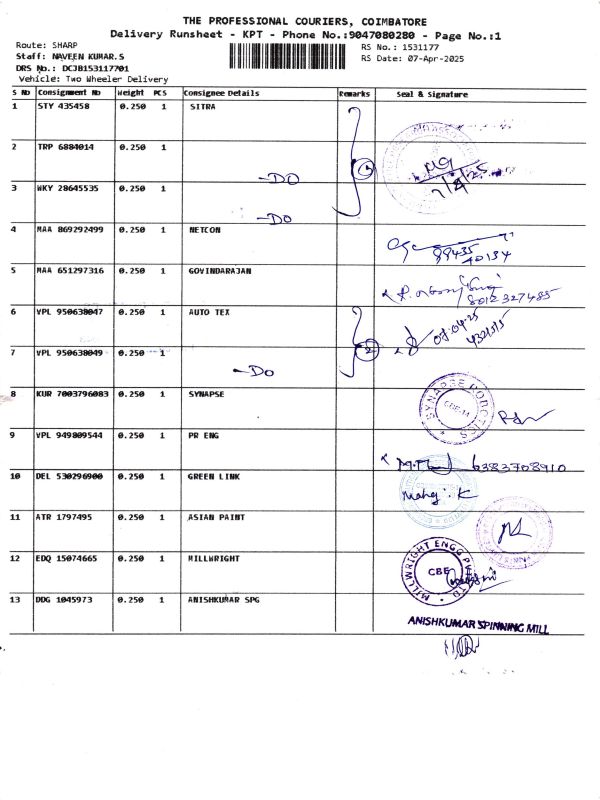 THE PROFESSIONAL COURIERS, COIMBATORE
Delivery Runsheet - KPT - Phone No.:9047080280 - Page No.:1
Route: SHARP
Staff: NAVEEN KUMAR.S
DRS No.: DCJB153117701
Vehicle: Two Wheeler Delivery
RS No.: 1531177
RS Date: 07-Apr-2025
S No Consignment No Weight PCS Consignee Details Remarks Seal & Signature
1 STY 435458 0.250 1 SITRA
2 TRP 6884014 0.250 1
-DO
3 WKY 28645535 0.250 1
-DO
4 MAA 869292499 0.250 1 NETCON
88435
40134
5 MAA 651297316 0.250 1 GOVINDARAJAN
8012327485
6 VPL 950638047 0.250 1 AUTO TEX
08.04.25
7 VPL 950638049 0.250 1
-DO
2
8 KUR 7003796083 0.250 1 SYNAPSE
SYNAPSE ROBOTICS
CBE-14
9 VPL 949809544 0.250 1 PR ENG
6383708910
10 DEL 530296900 0.250 1 GREEN LINK
11 ATR 1797495 0.250 1 ASIAN PAINT
12 EDQ 15074665 0.250 1 MILLWRIGHT
MILLWRIGHT ENGG PVT LTD
CBE
13 DDG 1045973 0.250 1 ANISHKUMAR SPG
ANISHKUMAR SPINNING MILL